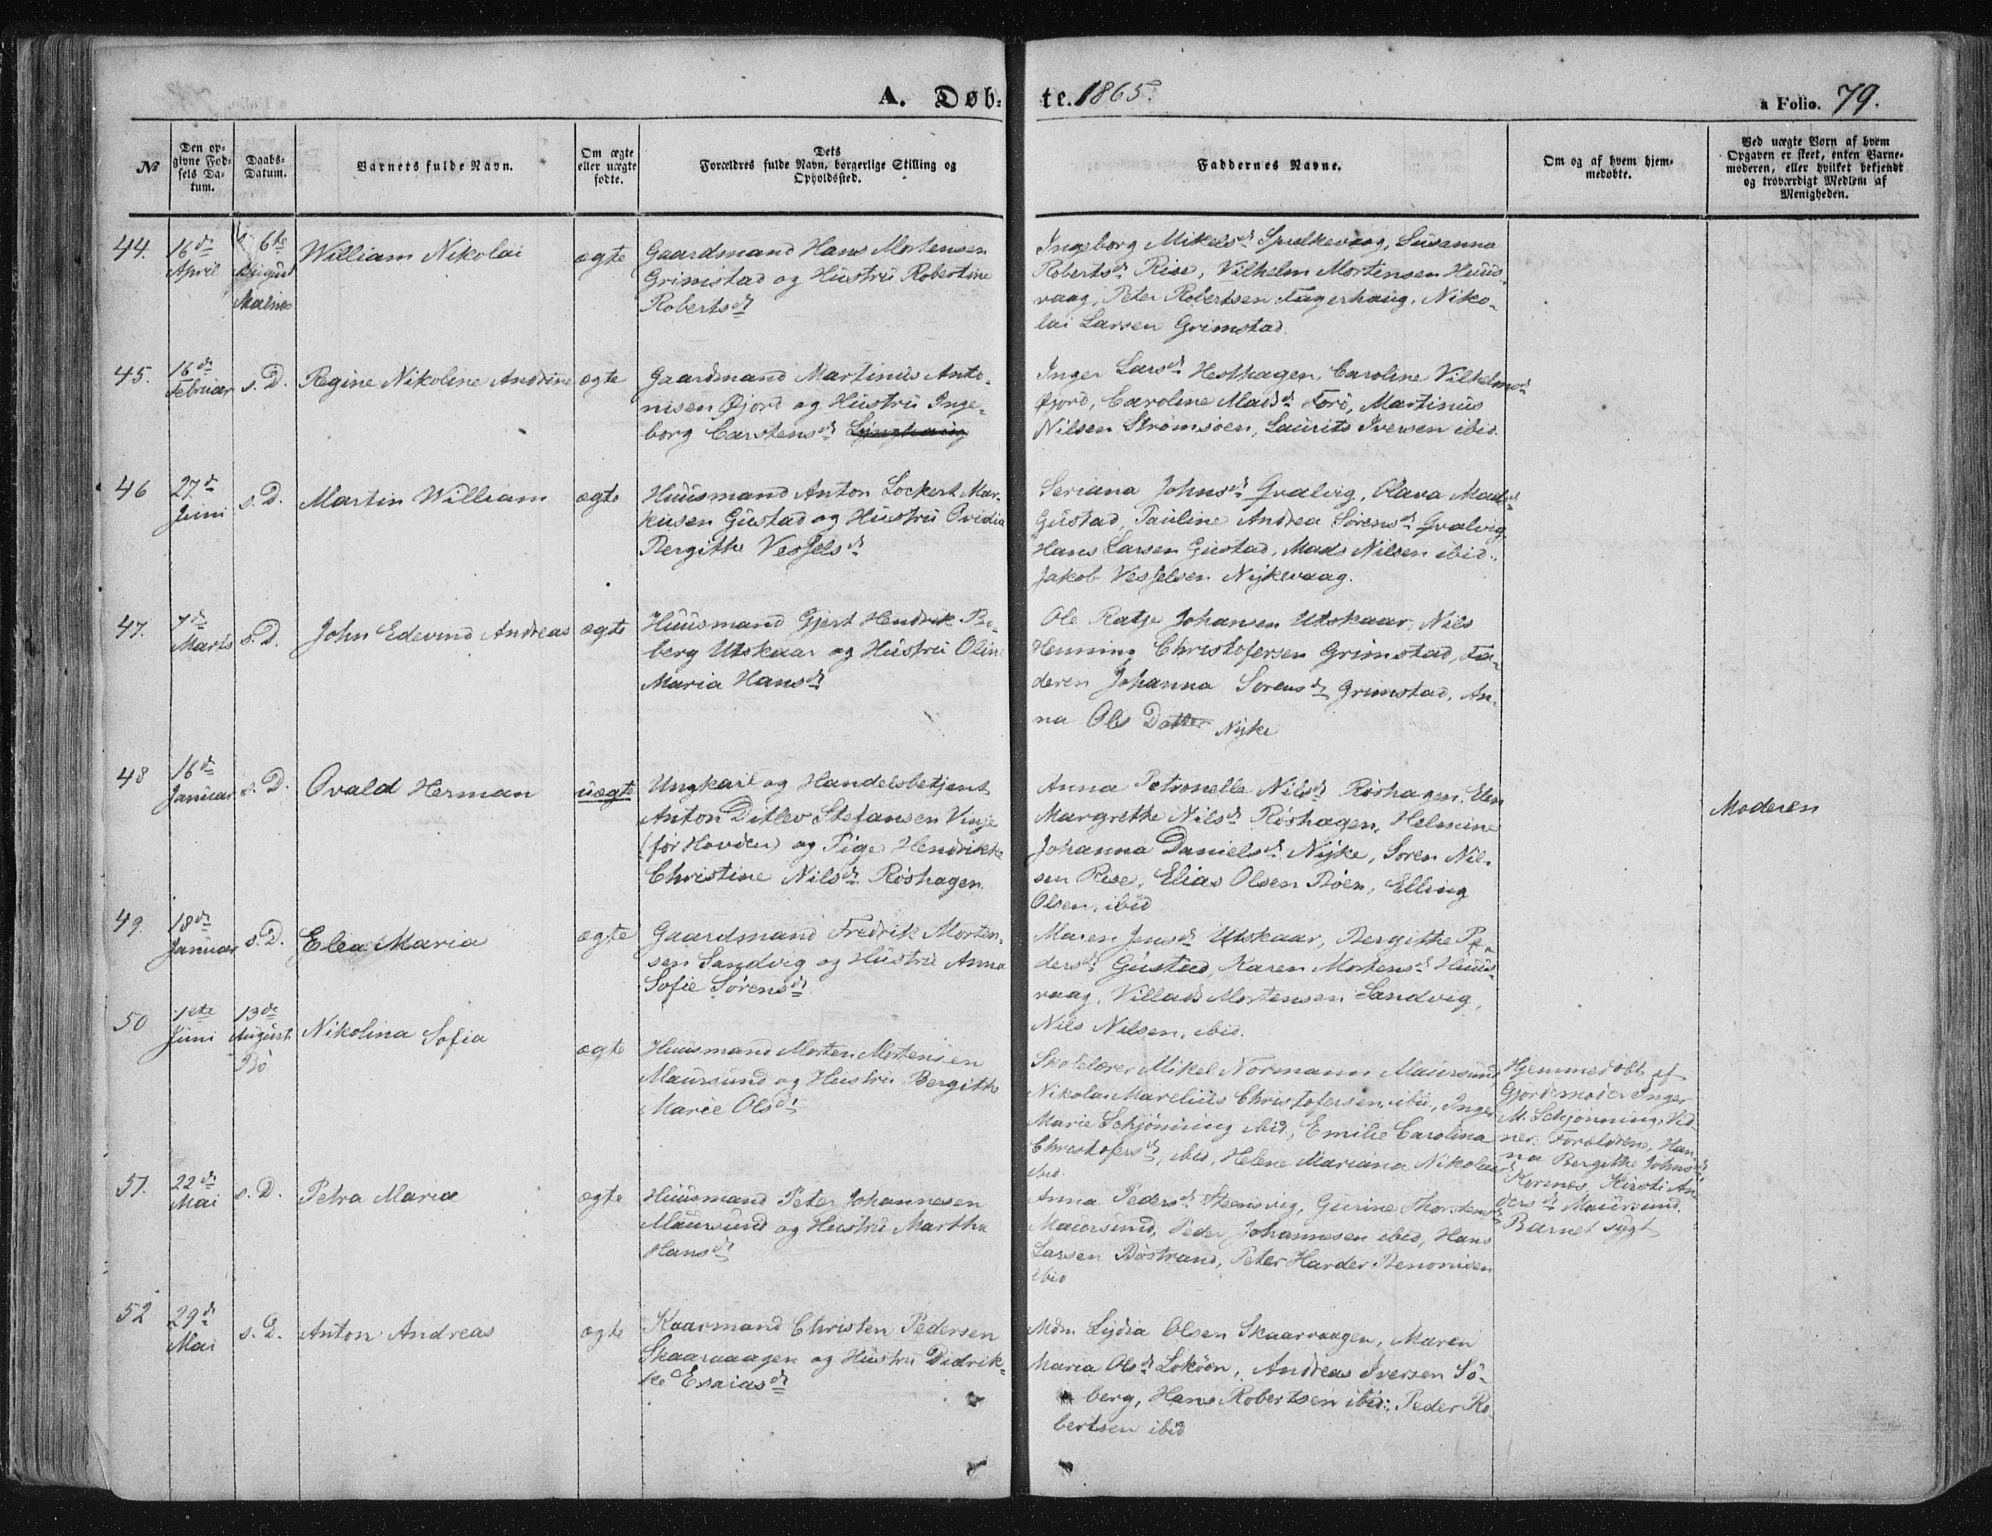 A. Døb-
te. 1865.
a Folio. 79.
№
Den op-
givne Fød-
sels Da-
tum.
Daabs-
Datum.
Barnets fulde Navn.
Om ægte
eller uægte
fødte.
Dets
Forældres fulde Navn, borgerlige Stilling og
Opholdssted.
Faddernes Navne.
Om og af hvem hjem-
medøbte.
Ved uægte Børn af hvem
Opgaven er skeet, enten Barne-
moderen, eller hvilket bekjendt
og troværdigt Medlem af
Menigheden.
44.
16de
April
6te
August
Malnes
William Nikolai
ægte
Gaardmand Hans Mortensen
Grimstad og Hustru Robertine
Robertsdr
Ingeborg Mikelsdr Spælkevaag, Susanna
Robertsdr Rise, Vilhelm Mortensen Huus-
vaag, Peter Robertsen Fagerhaug, Niko-
lai Larsen Grimstad.
45.
16de
Februar
s. D.
Regine Nikoline Andrine
ægte
Gaardmand Martinus Anto-
nisen Øjord og Hustru Inge-
borg Carstensdr
Inger Larsdr Hesthagen, Caroline Vilhelmsdr
Øjord, Caroline Madsdr Forø, Martinus
Nilsen Strømsøen, Laurits Iversen ibid.
46
27de
Juni
s. D.
Martin William
ægte
Huusmand Anton Lockert Mar-
kusen Gustad og Hustru Ovidia
Bergithe Vesselsdr
Seriana Johnsdr Qvalvig, Olava Madsdr
Gustad, Pauline Andrea Sørensdr Qvalvig,
Hans Larsen Gustad, Mads Nilsen ibid.,
Jakob Vesselsen Nykevaag.
47.
7de
Marts
s. D.
John Edevind Andreas
ægte
Huusmand Gjert Hendrik Bo-
berg Utskaar og Hustru Oline
Maria Hansdr
Ole Ratje Johansen Utskaar, Nils
Henning Christofersen Grimstad, Fa-
deren Johanna Sørensdr Grimstad, An-
na Ols Datter Nyke
48
16de
Januar
s. D.
Ovald Herman
uægte
Ungkarl og Handelsbetjent
Anton Ditlev Stefansen Vinje
(før Hovden) og Pige Hendrikke
Christine Nilsdr Røshagen
Anna Petronelle Nilsdr Røshagen, Elen
Margrethe Nilsdr Røshagen, Helmine
Johanna Danielsdr Nyke, Søren Nil-
sen Rise, Elias Olsen Bøen, Elling
Olsen, ibid
Moderen
49.
18de
Januar
s. D.
Elea Maria
ægte
Gaardmand Fredrik Morten-
sen Sandvig og Hustru Anna
Sofie Sørensdr
Maren Jensdr Utskaar, Bergithe Pe-
dersdr Gustad, Karen Mortensdr Huus-
vaag, Villads Mortensen Sandvig,
Nils Nilsen, ibid.
50
1ste
Juni
13de
August
Bø
Nikolina Sofia
ægte
Huusmand Morten Mortensen
Maursund og Hustru Bergithe
Marie Olsdr
Skolelærer Mikel Normann Maursund
Nikolai Marelius Christofersen, ibid., Inger
Marie Schjønning ibid., Emilie Carolina
Christofersdr, ibid, Helene Mariana Nikolai
ibid
Hjemmedøbt af
Gjordemoder Inger
M. Schjønning. Vid-
ner: Forældrene, Han-
na Bergithe Johnsdr
Korsnes, Kirsti An-
dersdr Maursund.
Barnet sygt
51.
22de
Mai
s. D.
Petra Maria
ægte
Huusmand Peter Johannesen
Maursund og Hustru Martha
Hansdr
Anna Pedersdr Steensvig, Gurine Thorstensdr
Maursund, Peder Johannesen ibid, Hans
Larsen Bøstrand, Peter Harder Benonisen
ibid
52
29de
Mai
s. D.
Anton Andreas
ægte
Kaarmand Christen Pedersen
Skaarvaagen og Hustru Didrik-
ke Esaiasdr
Mdm Lydia Olsen Skaarvaagen, Maren
Maria Olsdr Lokøen, Andreas Iversen Sø-
berg, Hans Robertsen ibid., Peder Ro-
bertsen ibid